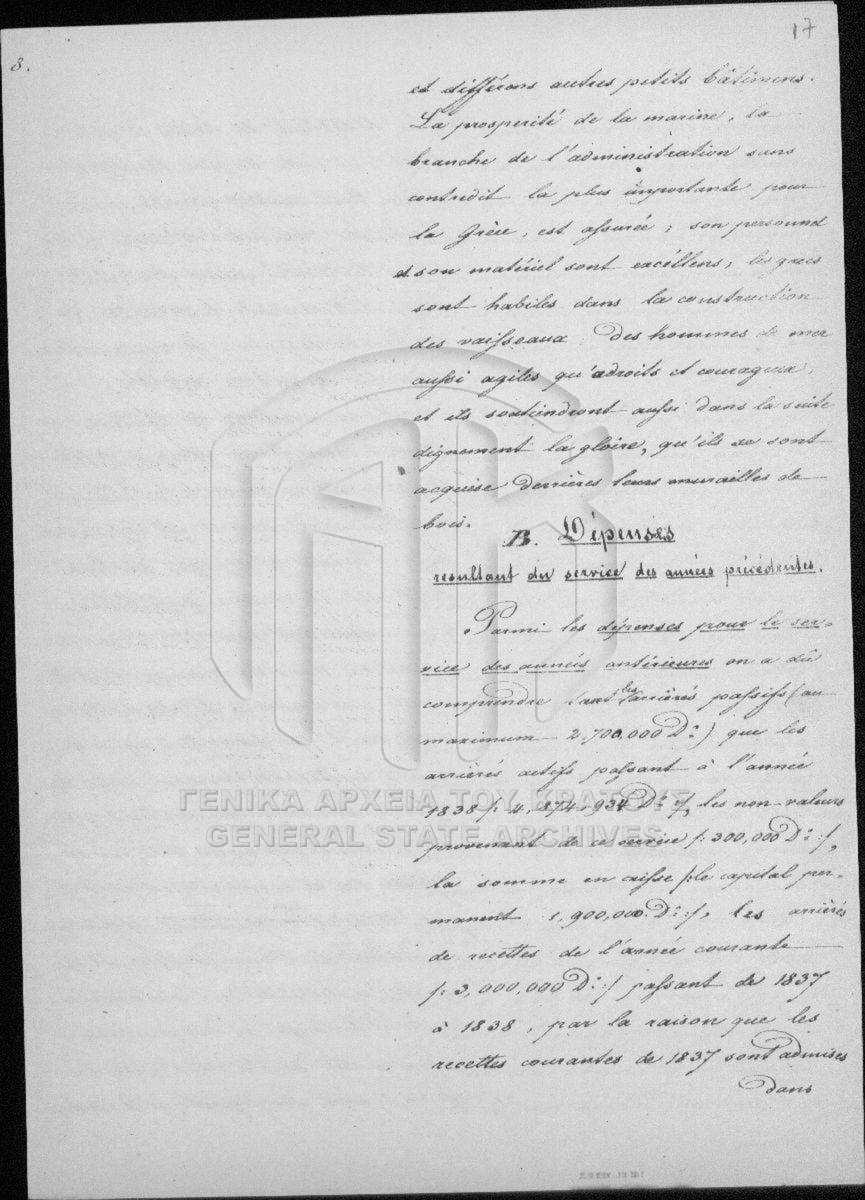 17
8.
et différens autres petits bâtimens.
La prosperité de la marine, la
branche de l'administration sans
contredit la plus importante pour
la Grèce, est assurée; son personnel
et son matériel sont excéllens, les grecs
sont habiles dans la construction
des vaisseaux des hommes de mer
aussi agiles qu'adroits et courageux,
et ils soutiendront aussi dans la suite
dignement la gloire, qu'ils se sont
acquise derrières leurs murailles de
bois.
B. Dépenses
resultant du service des années précédentes.
Parmi les dépenses pour le ser-
vice des années antérieures on a dû
comprendre tant les arriérés passifs (au
maximum 2,700,000 D.) que les
arriérés actifs passant à l'année
1838 /: 4,874,934 D. :/, les non-valeurs
provenant de ce service /: 300,000 D. :/,
la somme en caisse /: le capital per-
manent 1,900,000. D. :/, les arriérés
de recettes de l'année courante
/: 3,000,000 D. :/ passant de 1837
à 1838, par la raison que les
recettes courantes de 1837 sont admises
dans
ΓΕΝΙΚΑ ΑΡΧΕΙΑ ΤΟΥ ΚΡΑΤΟΥΣ
GENERAL STATE ARCHIVES